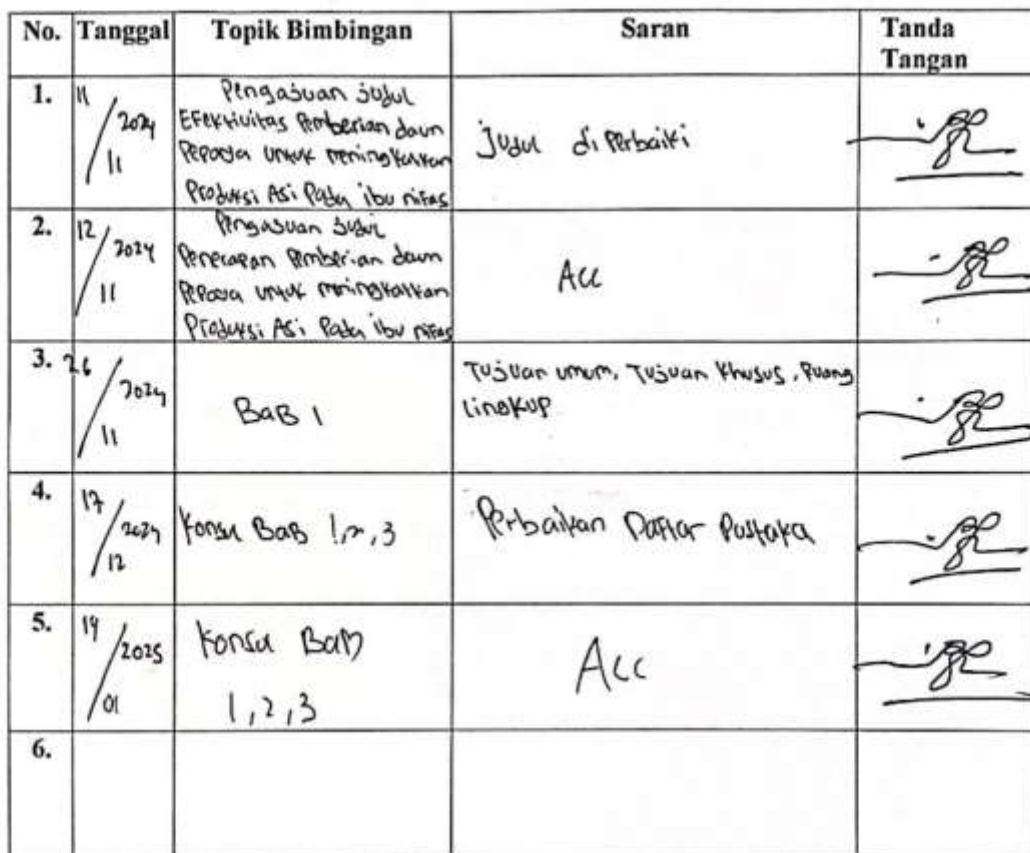 No. Tanggal Topik Bimbingan Saran Tanda
Tangan
1. 11/2024/11
Pengajuan judul
Efektivitas Pemberian daun
Pepaya untuk meningkatkan
Produksi Asi Pada ibu nifas
judul diperbaiki
2. 12/2024/11
Pengajuan judul
Penerapan Pemberian daun
Pepaya untuk meningkatkan
Produksi Asi Pada ibu nifas
Acc
3. 26/2024/11
BAB 1
Tujuan umum, Tujuan Khusus, Ruang
lingkup
4. 17/2024/12
Konsul BAB 1,2,3
Perbaikan Daftar Pustaka
5. 14/2025/01
Konsul BAB
1,2,3
Acc
6.